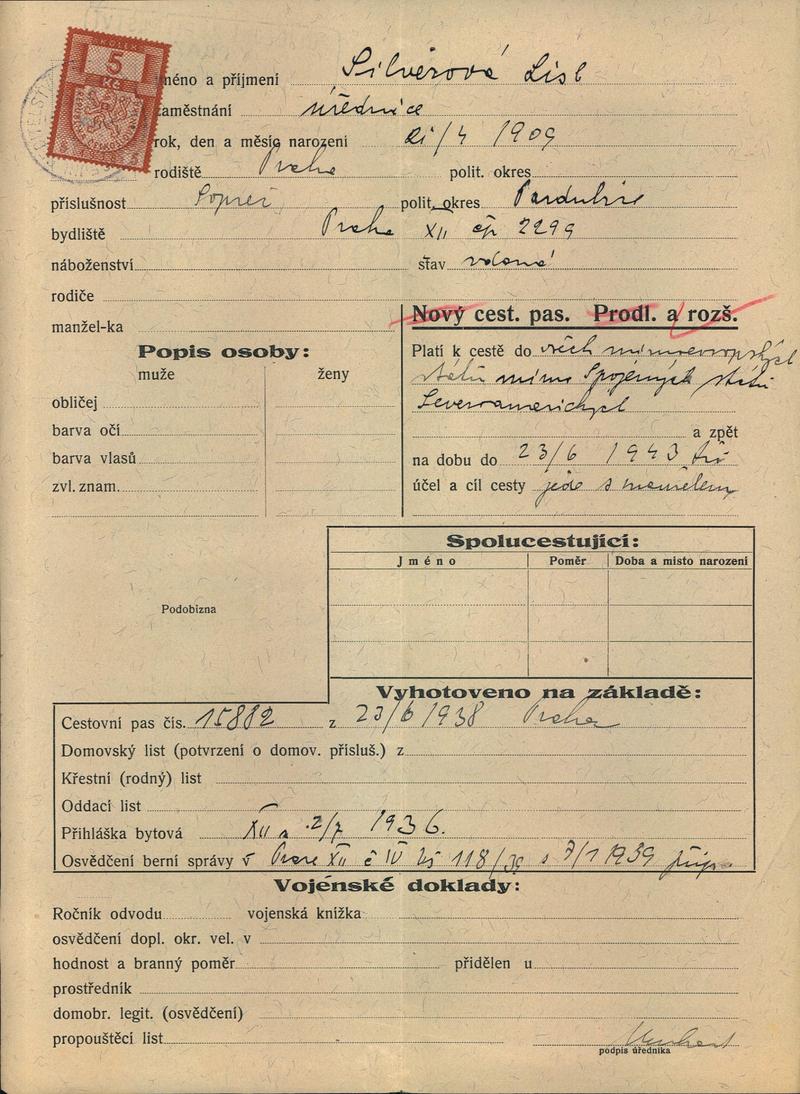 KOLEK
5
Kč
Jméno a příjmení Silvérová Lisl
zaměstnání úřednice
rok, den a měsíc narození 21/4 1909
rodiště Praha polit. okres
příslušnost Sopreč polit. okres Pardubice
bydliště Praha XII čp 2299
náboženství stav
rodiče
manžel-ka
Nový cest. pas. Prodl. a rozš.
Popis osoby:
muže ženy
obličej
barva očí
barva vlasů
zvl. znam.
Platí k cestě do všech mimoevropských
států mimo Spojených států
Severoamerických
a zpět
na dobu do 23/6 1943
účel a cíl cesty jede s manželem
Spolucestující:
Jméno Poměr Doba a místo narození
Podobizna
Vyhotoveno na základě:
Cestovní pas čís. 15882 z 23/6 1938 Praha
Domovský list (potvrzení o domov. přísluš.) z
Křestní (rodný) list
Oddací list
Přihláška bytová XII a 2/7 1936.
Osvědčení berní správy v Praze XII č IV 118/39 s 7/1 1939
Vojenské doklady:
Ročník odvodu vojenská knížka
osvědčení dopl. okr. vel. v
hodnost a branný poměr přidělen u
prostředník
domobr. legit. (osvědčení)
propouštěcí list
podpis úředníka